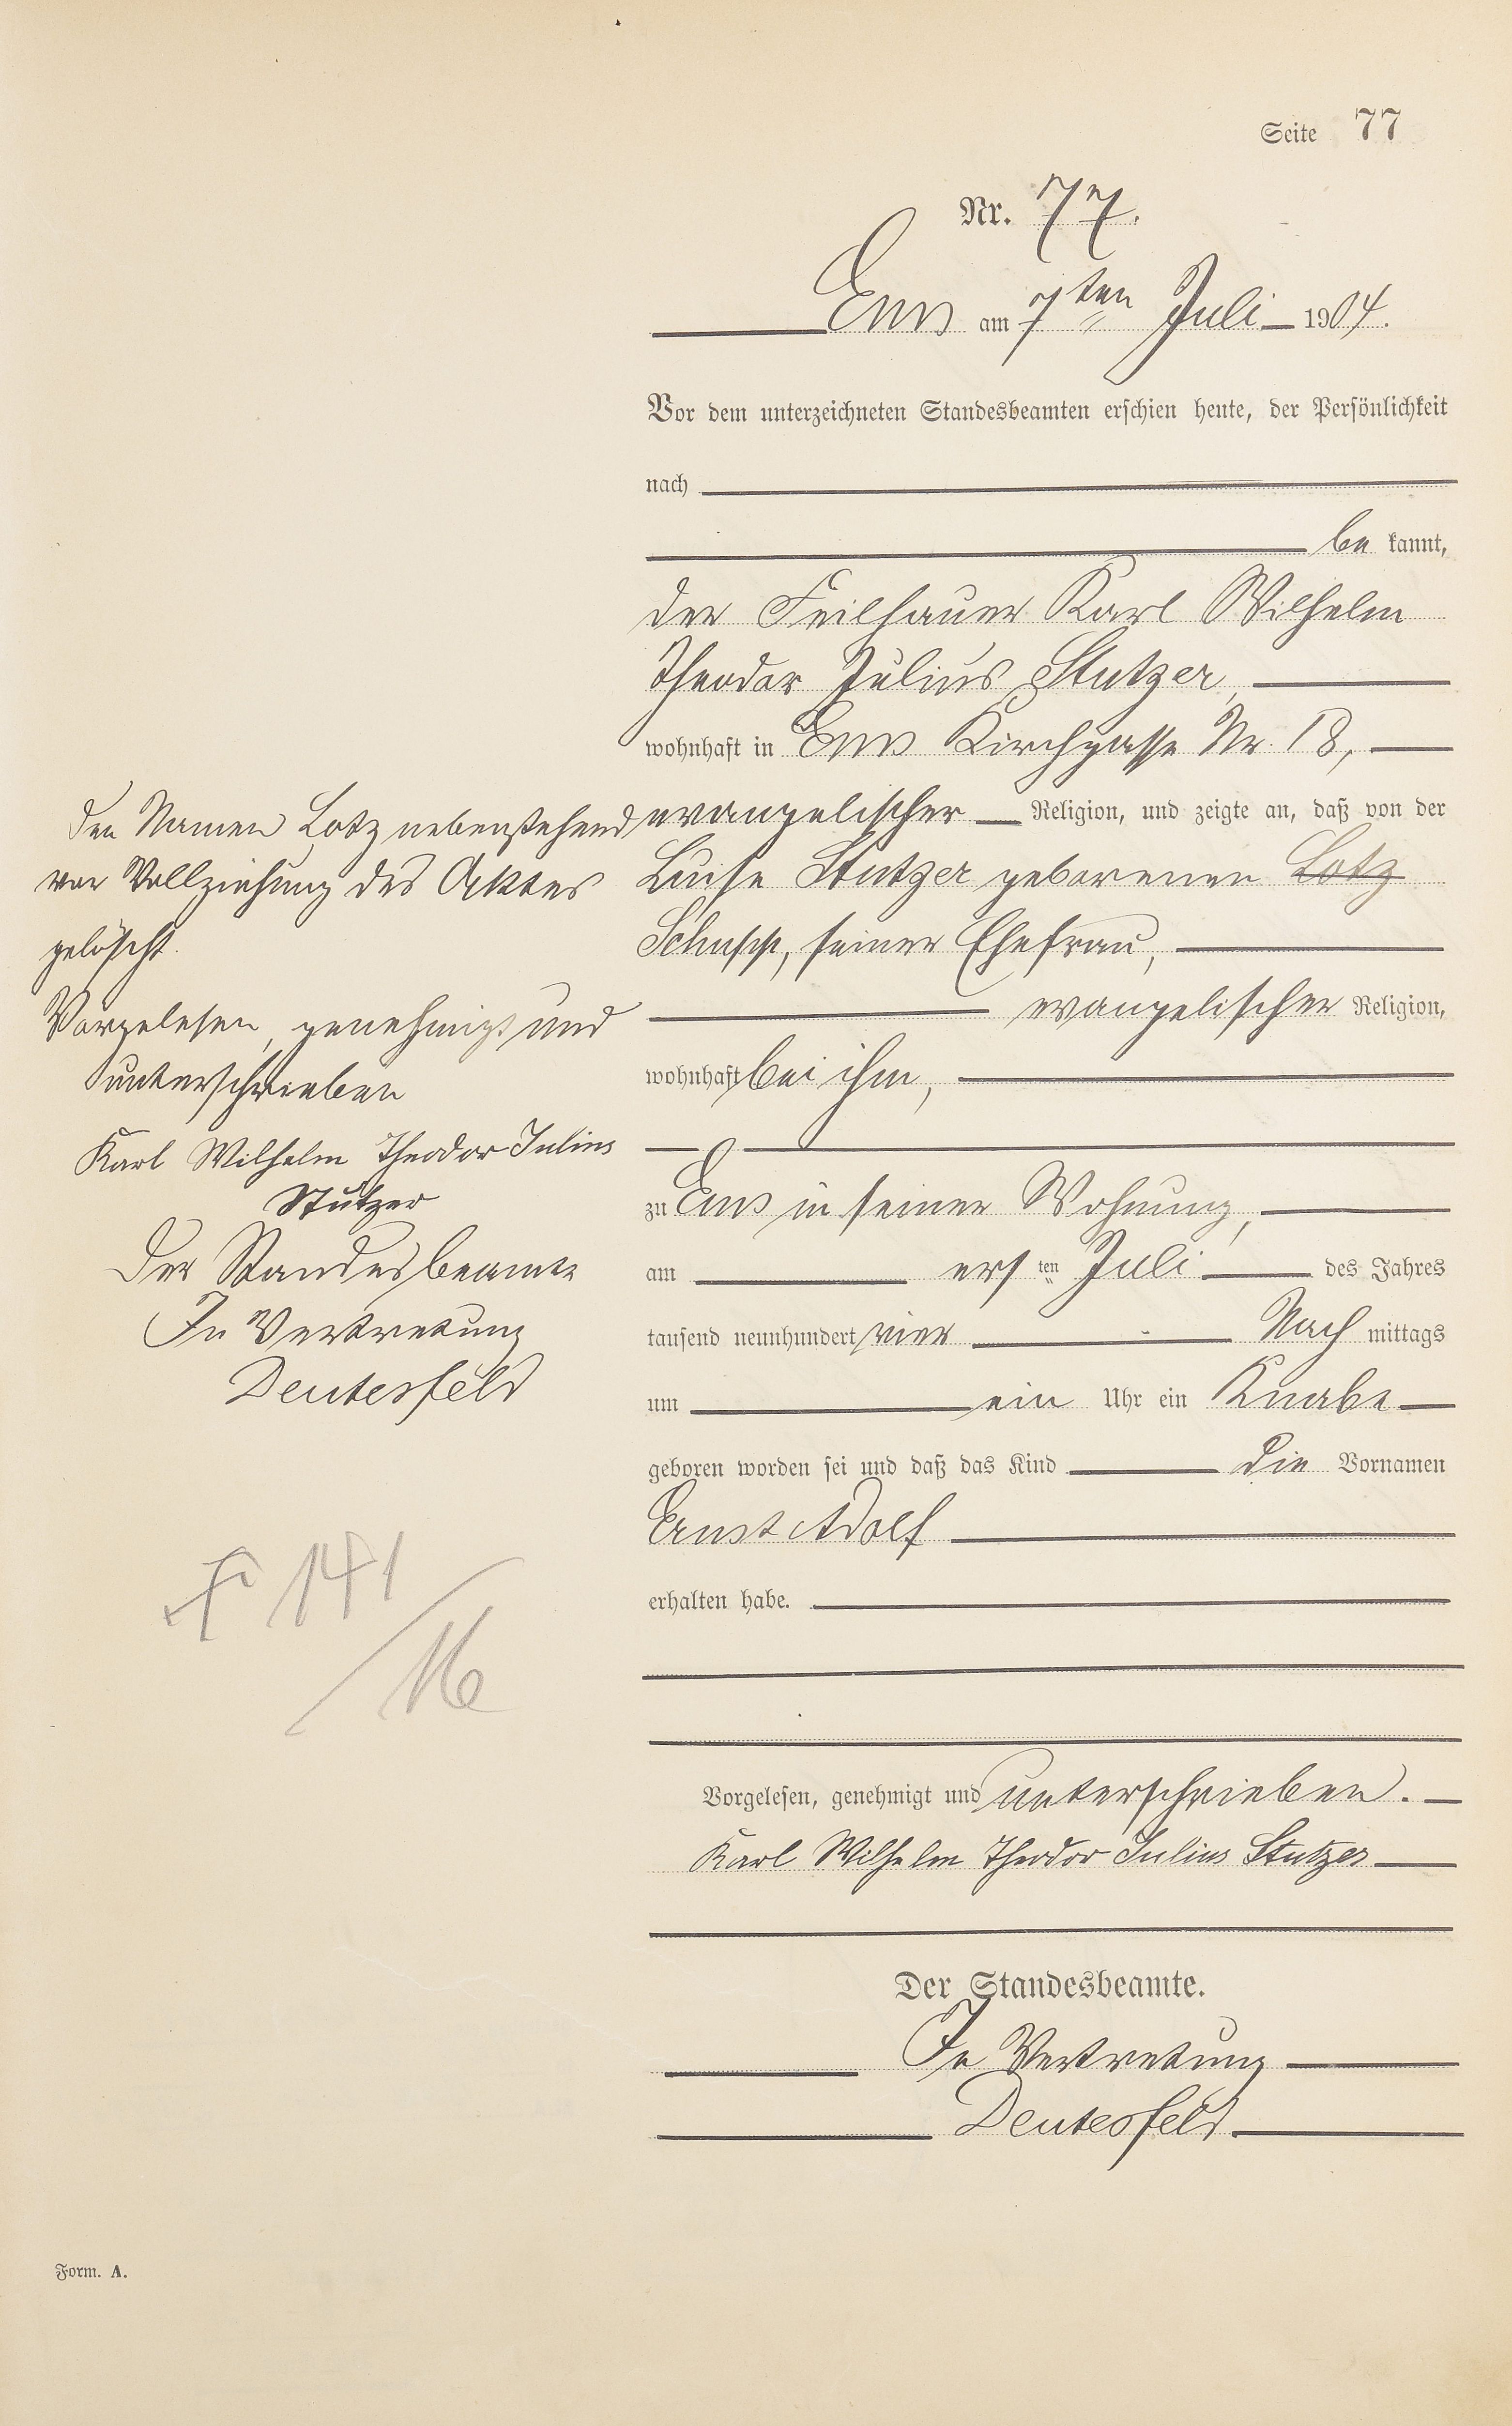 Seite 77
Nr. 77.
Ems am 7ten Juli 1904.
Vor dem unterzeichneten Standesbeamten erschien heute, der Persönlichkeit
nach
be kannt,
der Feilhauer Karl Wilhelm
Theodor Julius Stutzer,
wohnhaft in Ems Kirchgasse Nr. 18,
evangelischer Religion, und zeigte an, daß von der
Luise Stutzer geborenen Lotz
Schupp, seiner Ehefrau,
evangelischer Religion,
wohnhaft bei ihm,
zu Ems in seiner Wohnung,
am ersten Juli des Jahres
tausend neunhundert vier Nach mittags
um ein Uhr ein Knabe
geboren worden sei und daß das Kind die Vornamen
Ernst Adolf
erhalten habe.
Vorgelesen, genehmigt und unterschrieben.
Karl Wilhelm Theodor Julius Stutzer
Der Standesbeamte.
In Vertretung
Deutesfeld
Den Namen Lotz nebenstehend
vor Vollziehung des Aktes
gelöscht.
Vorgelesen, genehmigt und
unterschrieben
Karl Wilhelm Theodor Julius
Stutzer
Der Standesbeamte
In Vertretung
Deutesfeld
Form. A.